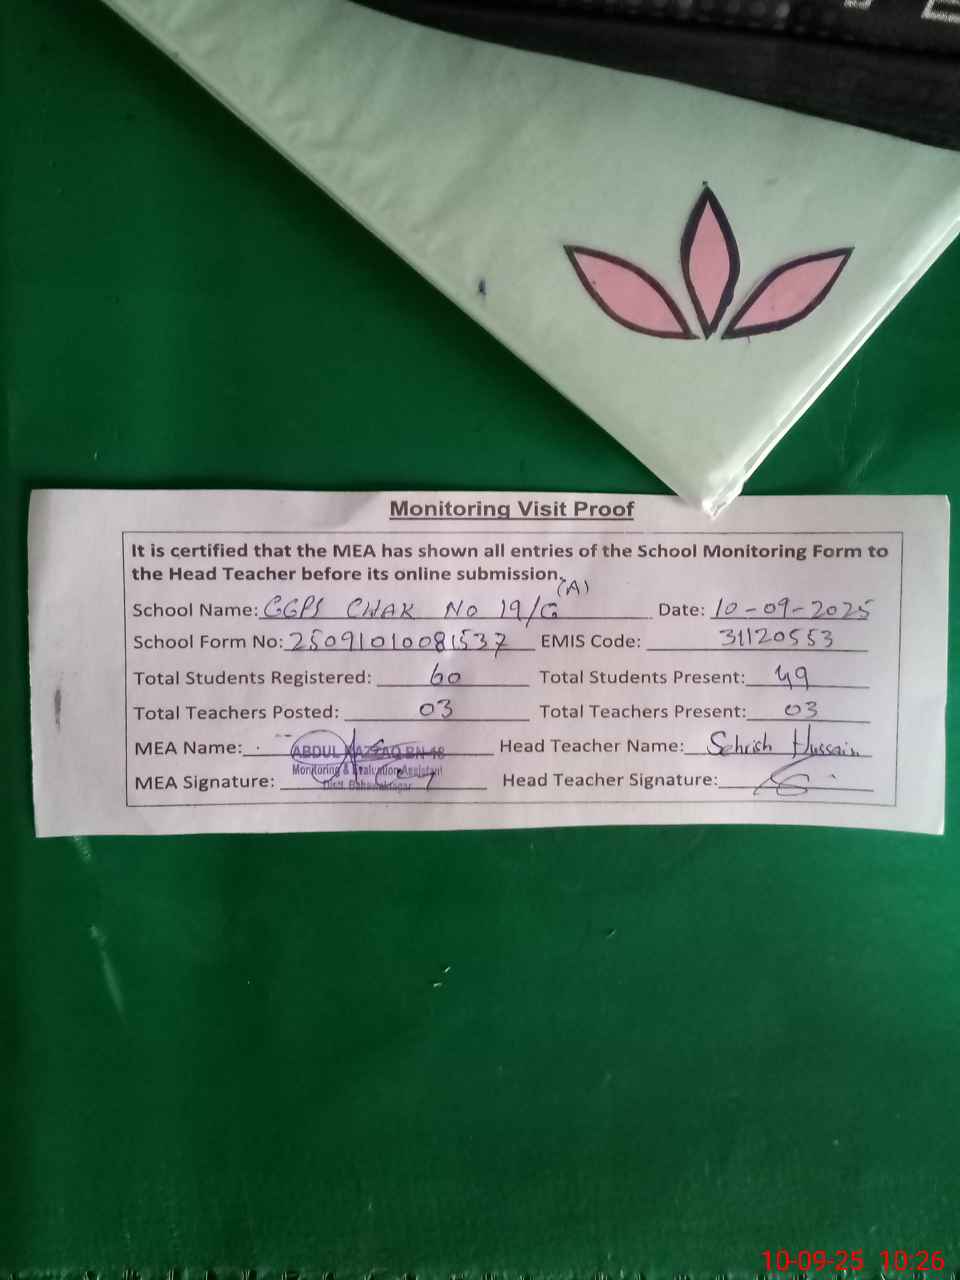 Monitoring Visit Proof
It is certified that the MEA has shown all entries of the School Monitoring Form to
the Head Teacher before its online submission.
School Name: GGPS CHAK No 19/G (A) Date: 10-09-2025
School Form No: 25091010081537 EMIS Code: 31120553
Total Students Registered: 60 Total Students Present: 49
Total Teachers Posted: 03 Total Teachers Present: 03
MEA Name: ABDUL RAZZAQ BN-48 Head Teacher Name: Sehrish Hussain
Monitoring & Evaluation Assistant
MEA Signature: Distt. Bahawalnagar Head Teacher Signature:
10-09-25 10:26